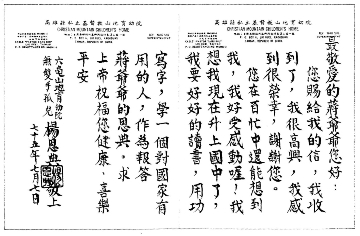 高雄縣私立基督教山地育幼院
CHRISTIAN MOUNTAIN CHILDREN'S HOME
最敬愛的蔣爺爺您好：
您賜給我的信，我收
到了，我很高興，我感
到很榮幸，謝謝您。
您在百忙中還能想到
我，我好受感動喔！我
想我現在升上國中了，
我要好好的讀書，用功
高雄縣私立基督教山地育幼院
CHRISTIAN MOUNTAIN CHILDREN'S HOME
寫字，學一個對國家有
用的人，作為報答
蔣爺爺的恩典，求
上帝祝福您健康、喜樂
平安
六龜山地育幼院
無雙手孤兒 楊恩典 敬上
七十五年七月七日